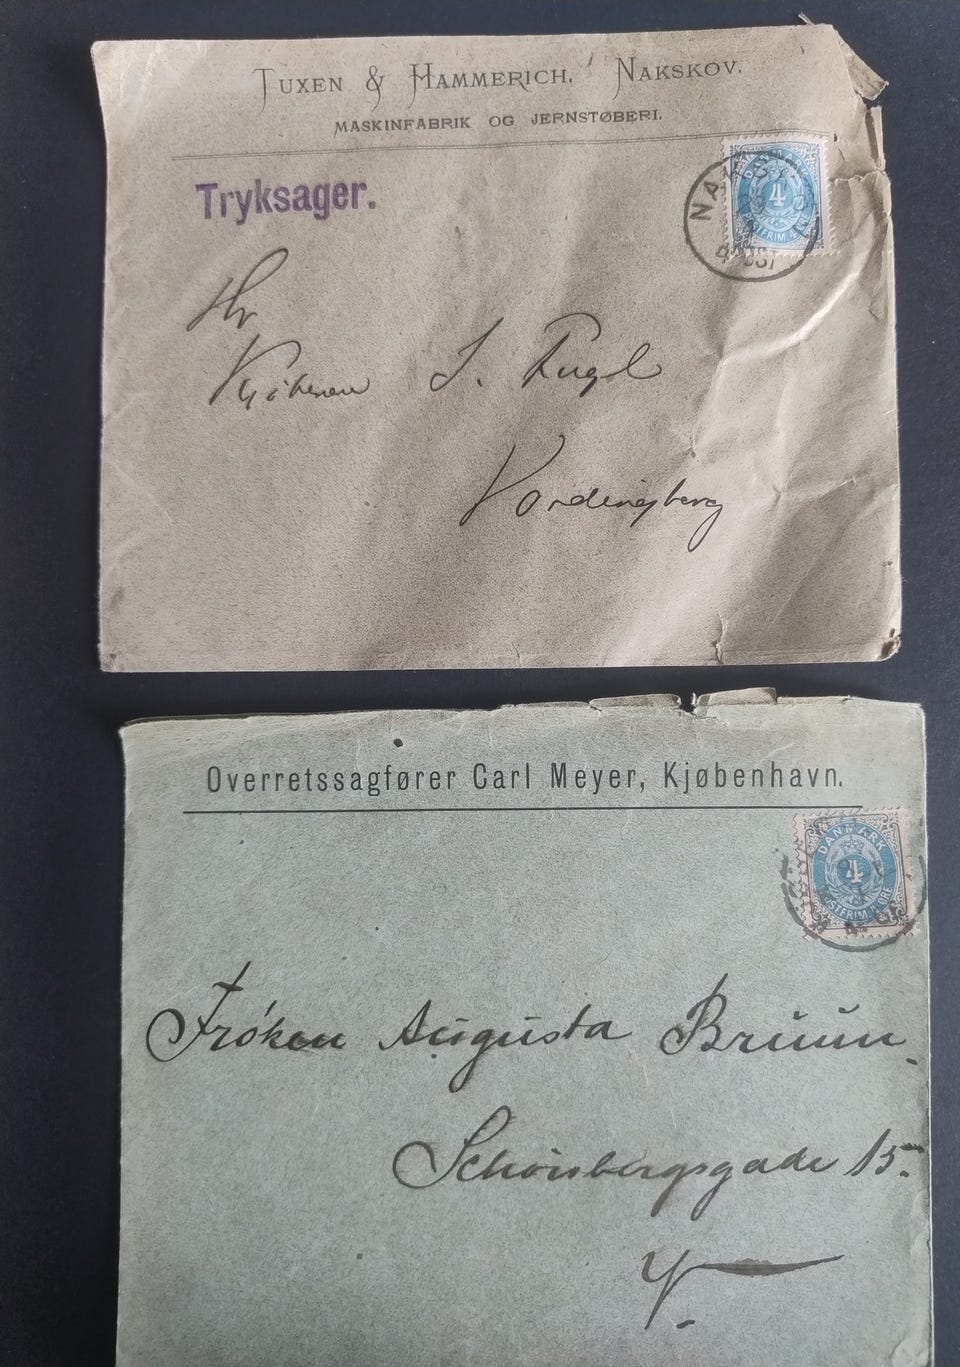 TUXEN & HAMMERICH, NAKSKOV.
MASKINFABRIK OG JERNSTØBERI.
Tryksager.
DANMARK
4
POSTFRIM 4 ØRE
Hr
S. Fugl
Vordingborg
Overretssagfører Carl Meyer, Kjøbenhavn.
DANMARK
4
POSTFRIM 4 ØRE
Frøken Augusta Bruun.
Schønbergsgade 15.